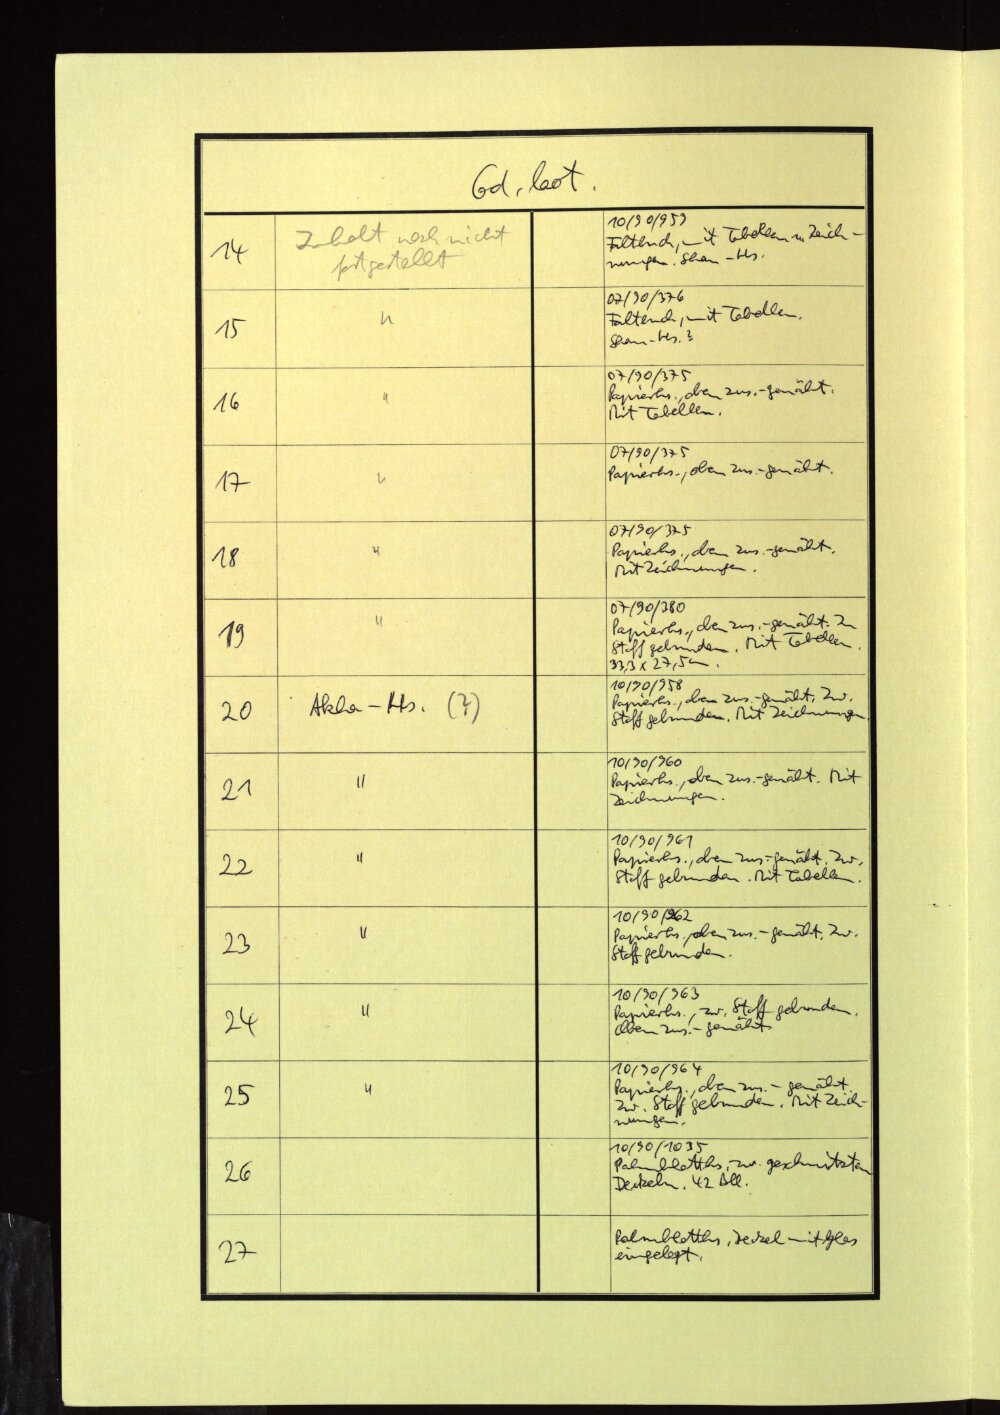 Cod. laot.
14
Inhalt noch nicht
festgestellt
10/90/959
Faltbuch, mit Tabellen u. Zeich-
nungen. Shan-Hs.
15
"
07/90/376
Faltbuch, mit Tabellen.
Shan-Hs.?
16
"
07/90/375
Papierhs., oben zus.-genäht.
Mit Tabellen.
17
"
07/90/375
Papierhs., oben zus.-genäht.
18
"
07/90/375
Papierhs., oben zus.-genäht.
Mit Zeichnungen.
19
"
07/90/380
Papierhs., oben zus.-genäht. In
Stoff gebunden. Mit Tabellen.
33,3 x 27,5 cm.
20
Akha-Hs. (?)
10/90/958
Papierhs., oben zus.-genäht, zw.
Stoff gebunden. Mit Zeichnungen.
21
"
10/90/960
Papierhs., oben zus.-genäht. Mit
Zeichnungen.
22
"
10/90/961
Papierhs., oben zus.-genäht, zw.
Stoff gebunden. Mit Tabellen.
23
"
10/90/962
Papierhs., oben zus.-genäht, zw.
Stoff gebunden.
24
"
10/90/963
Papierhs., zw. Stoff gebunden,
oben zus.-genäht
25
"
10/90/964
Papierhs., oben zus.-genäht,
zw. Stoff gebunden. Mit Zeich-
nungen.
26
10/90/1035
Palmblatths., zw. geschnitzten
Deckeln. 42 Bll.
27
Palmblatths., Deckel mit Glas
eingelegt.